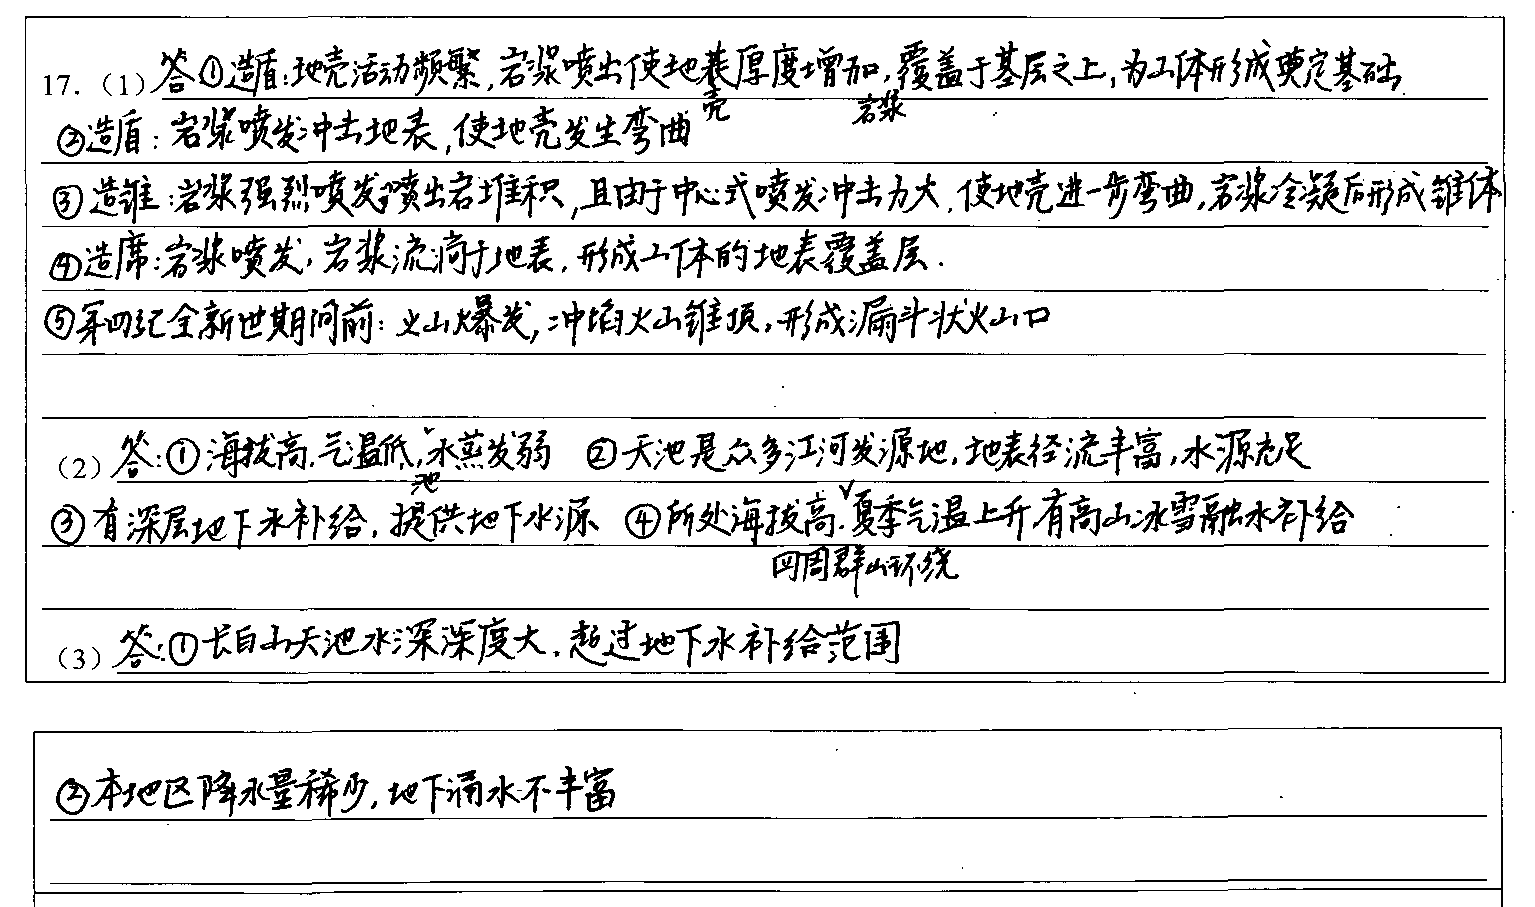 17.（1）答①造盾:地壳活动频繁,岩浆喷出使地表厚度增加,覆盖于基层之上,为山体形成奠定基础
壳 岩浆
②造盾:岩浆喷发冲击地表,使地壳发生弯曲
③造锥:岩浆强烈喷发,喷出岩堆积,且由于中心式喷发冲击力大,使地壳进一步弯曲,岩浆冷凝后形成锥体
④造席:岩浆喷发,岩浆流淌于地表,形成山体的地表覆盖层.
⑤第四纪全新世期间前:火山爆发,冲塌火山锥顶,形成漏斗状火山口
（2）答:①海拔高.气温低,水蒸发弱 ②天池是众多江河发源地,地表径流丰富,水源充足
池
③有深层地下水补给,提供地下水源 ④所处海拔高.夏季气温上升,有高山冰雪融水补给
四周群山环绕
（3）答:①长白山天池水深深度大,超过地下水补给范围
②本地区降水量稀少,地下涌水不丰富